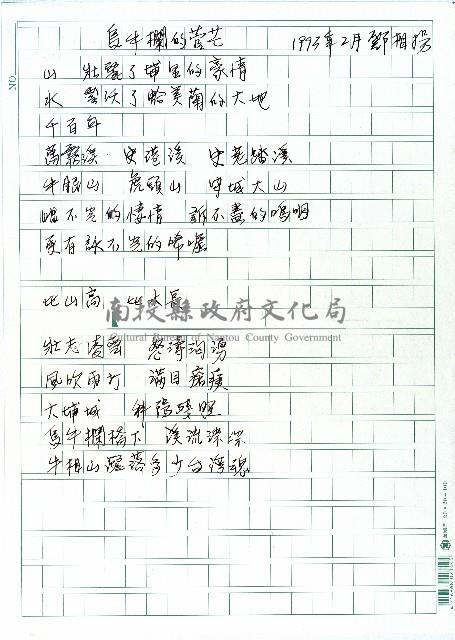 烏牛欄的菅芒 1993年2月 鄧相揚
山 壯麗了埔里的豪情
水 豐沃了蛤美蘭的大地
千百年
萬霧溪 史港溪 史荖塌溪
牛眠山 虎頭山 守城大山
唱不完的悽情 訴不盡的嗚咽
更有訴不完的唏噓
比山高 比水長
南投縣政府文化局
Cultural Bureau of Nantou County Government
壯志凌雲 怒濤洶湧
風吹雨打 滿目瘡痍
大埔城
烏牛欄橋下 溪流潺潺
牛相山 多少台灣魂
NO.